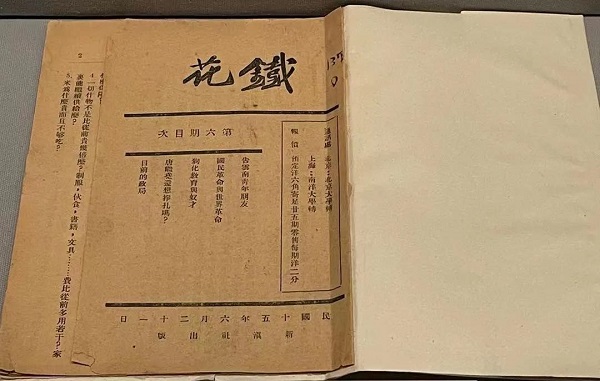 鐵花
第六期目次
告雲南青年朋友
國民革命與世界革命
狗化教育與奴才
唐繼堯還想掙扎嗎?
目前的政局
通訊處 北京:北京大學轉
上海:南洋大學轉
報價 預定洋六角寄足廿五期零售每期洋二分
民國十五年六月二十一日
新滇社出版
4.一切什物不是比從前貴幾倍麼?制服,伙食,書籍,文具……費比從前多用若干?家
裏能繼續供給麼?
5.米爲什麼貴而且不够吃?